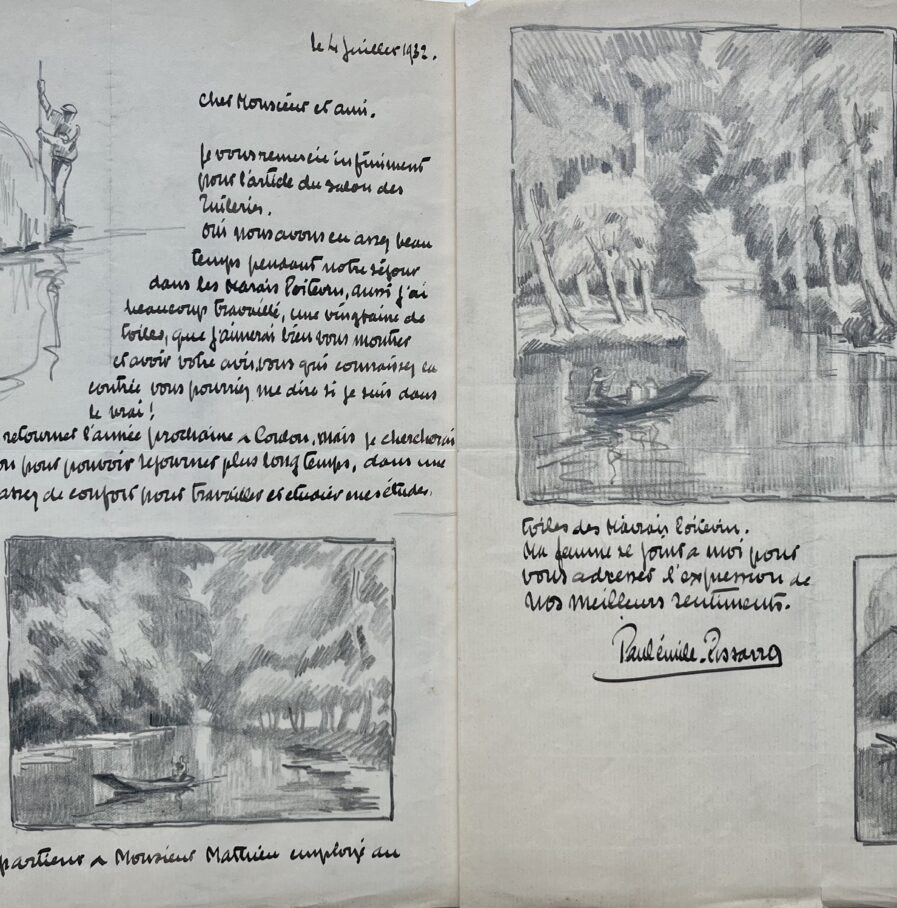 le 4 Juillet 1932.
cher Monsieur et ami.
je vous remercie infiniment
pour l'article du salon des
Tuileries.
oui nous avons eu assez beau
temps pendant notre séjour
dans les Marais Poitevin, aussi j'ai
beaucoup travaillé, une vingtaine de
toiles, que j'aimerai bien vous montrer
et avoir votre avis, vous qui connaissez la
contrée vous pourriez me dire si je suis dans
le vrai!
retourner l'année prochaine a Coulon, mais je chercherai
pour pouvoir sejourner plus longtemps, dans une
assez de confort pour travailler et etudier mes études.
partient a Monsieur Mathieu employé au
toiles des Marais Poitevin.
Ma femme se joint a moi pour
vous adresser l'expression de
nos meilleurs sentiments.
Paulémile-Pissarro